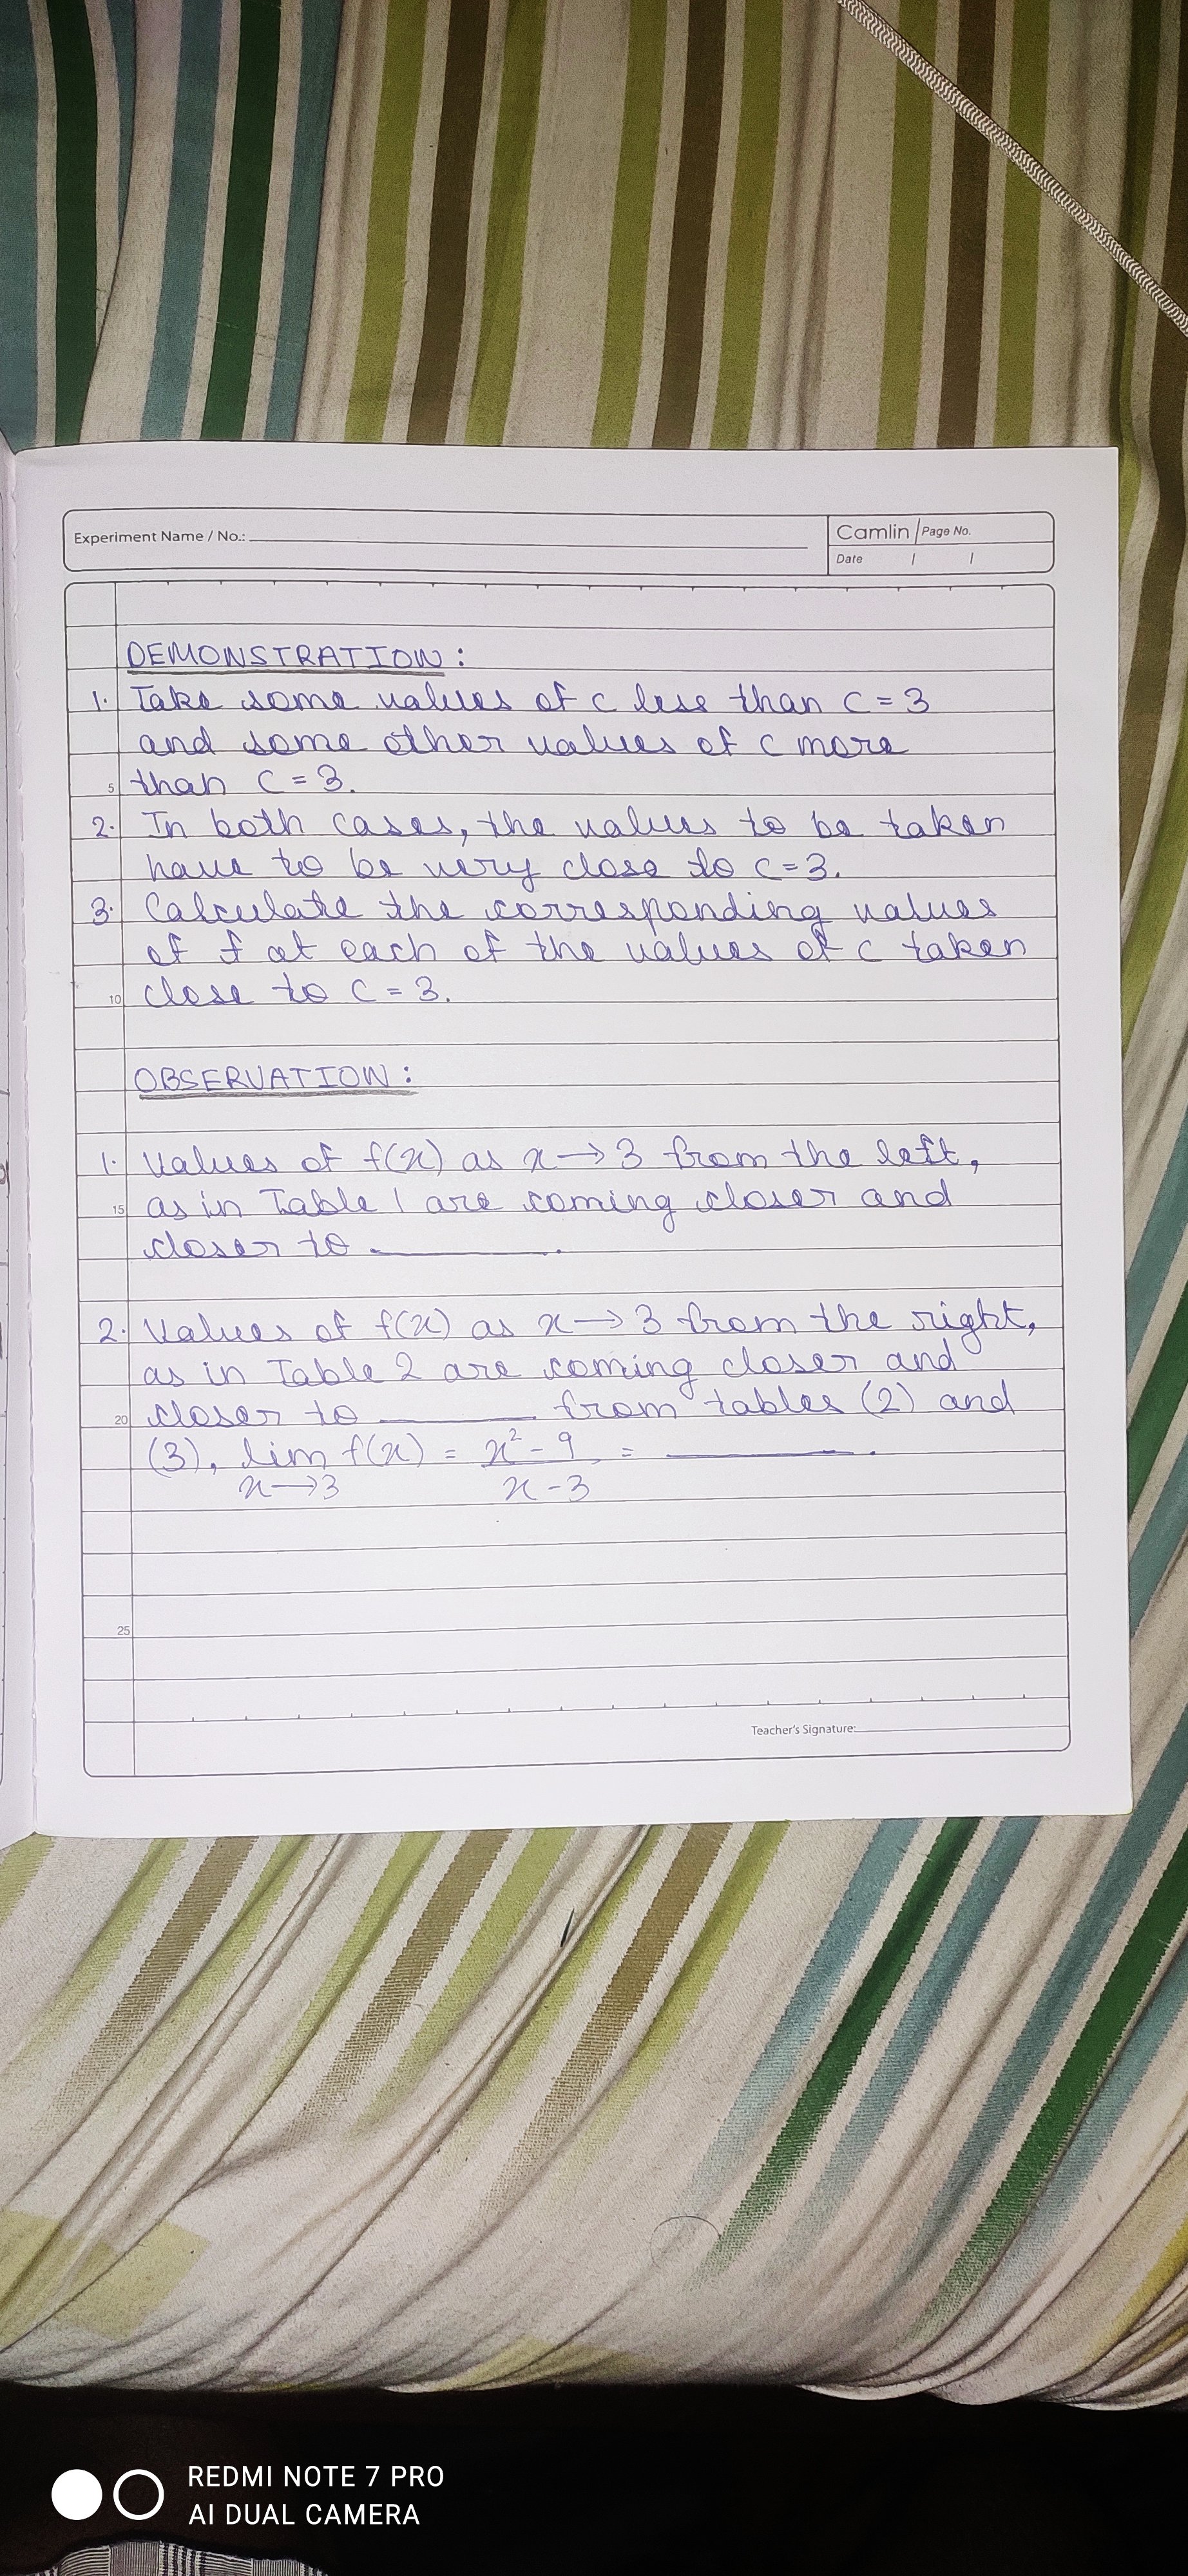 Experiment Name / No.:
Camlin Page No.
Date / /
DEMONSTRATION :
1. Take some values of c less than c = 3
and some other values of c more
5 than c = 3.
2. In both cases, the values to be taken
have to be very close to c = 3.
3. Calculate the corresponding values
of f at each of the values of c taken
10 close to c = 3.
OBSERVATION :
1. Values of f(x) as x → 3 from the left,
15 as in Table 1 are coming closer and
closer to ______.
2. Values of f(x) as x → 3 from the right,
as in Table 2 are coming closer and
20 closer to ______ from tables (2) and
(3), lim f(x) = x² - 9 = ______.
x → 3 x - 3
25
Teacher's Signature:
REDMI NOTE 7 PRO
AI DUAL CAMERA